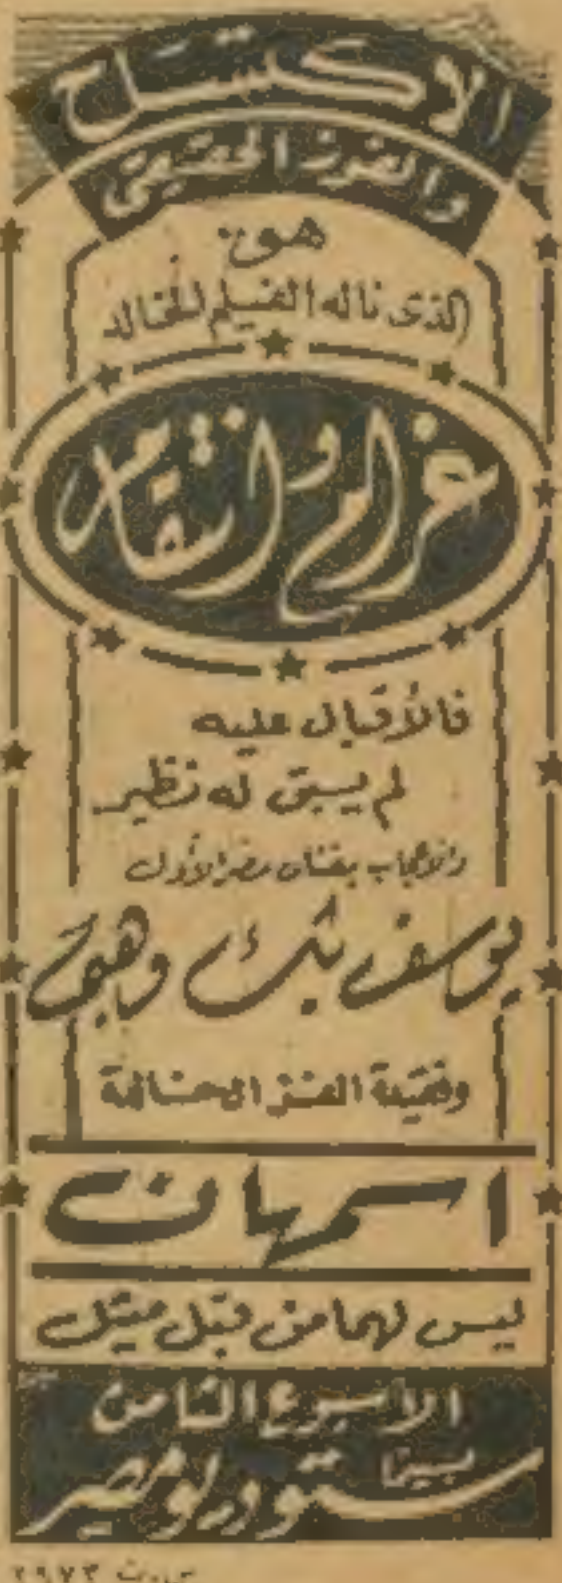 الاكتساح
والفوز الحقيقى
هو
الذى ناله الفيلم الخالد
غرام وانتقام
فالأقبال عليه
لم يسبق له نظير
والاعجاب بفنان مصر الأول
يوسف بك وهبى
وفقيدة الفن الخالدة
اسمهان
ليس لهما من قبل مثيل
الأسبوع الثامن
بسينما
ستوديو مصر
٢٩٧٣